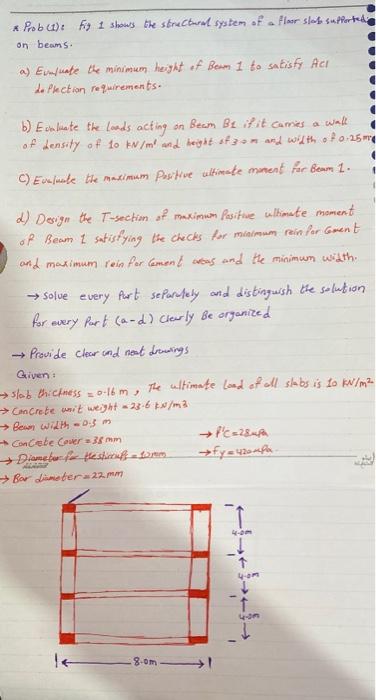 * Prob (1): Fig 1 shows the structural system of a floor slab supported
on beams.
a) Evaluate the minimum height of Beam 1 to satisfy ACI
deflection requirements.
b) Evaluate the loads acting on Beam B1 if it carries a wall
of density of 10 kN/m³ and height of 3.0m and width of 0.25m
C) Evaluate the maximum Positive ultimate moment for Beam 1.
d) Design the T-section of maximum Positive ultimate moment
of Beam 1 satisfying the checks for minimum reinforcement
and maximum reinforcement areas and the minimum width.
→ solve every Part separately and distinguish the solution
for every Part (a-d) Clearly Be organized
→ Provide clear and neat drawings
Given:
→ slab thickness = 0.16 m, The ultimate load of all slabs is 10 kN/m²
→ Concrete unit weight = 23.6 kN/m3
→ Beam width = 0.3 m
→ Concrete Cover = 38 mm → f'c = 28 MPa
→ Diameter for the stirrups = 10mm → fy = 420 MPa
→ Bar diameter = 22mm
4.0m
4.0m
4.0m
8.0m